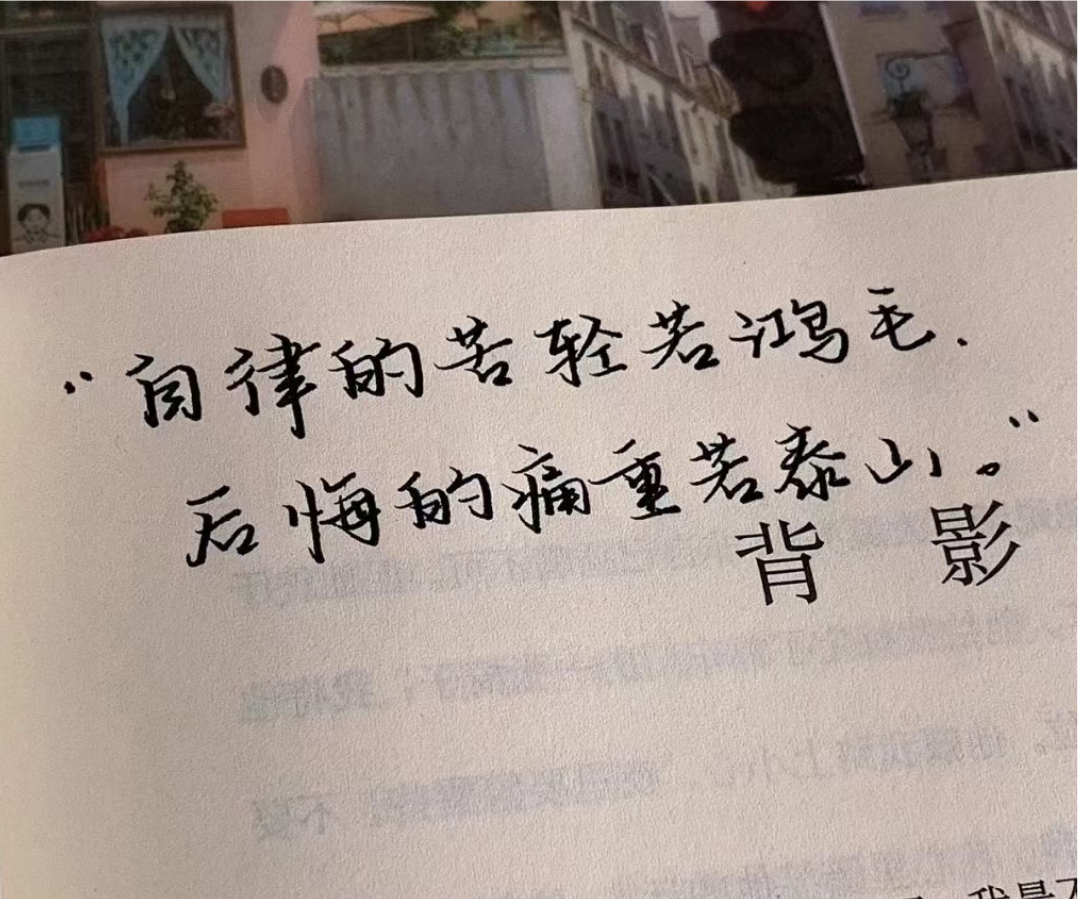 “自律的苦轻若鸿毛.
后悔的痛重若泰山。”
背 影
我是不